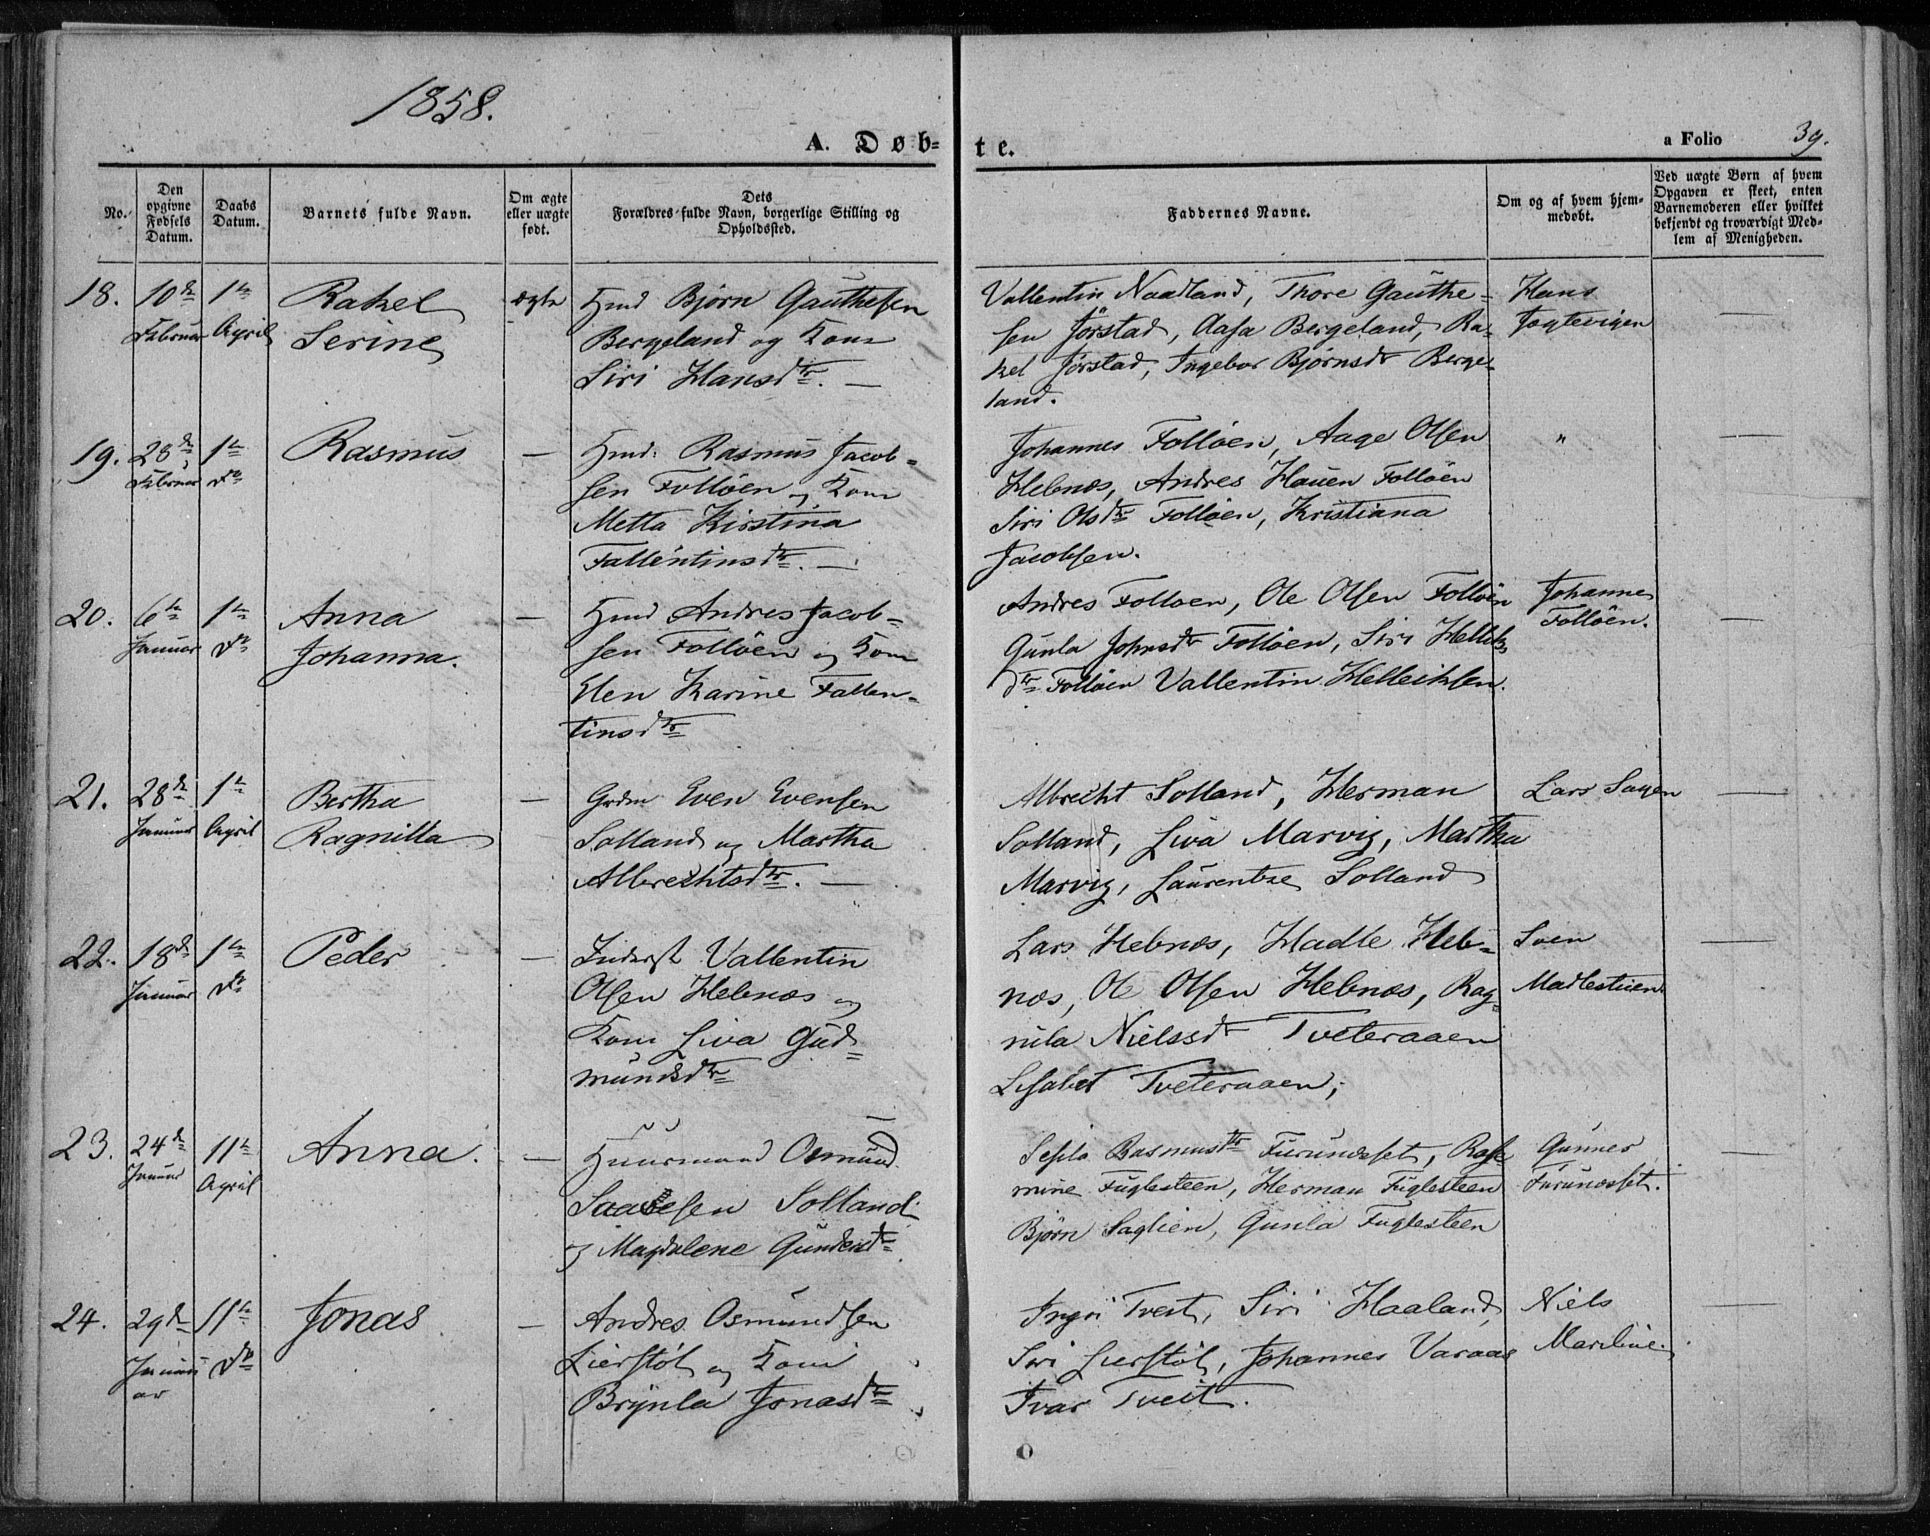 1858.
A. Døb-
te.
a Folio 39.
No.
Den opgivne Fødsels Datum.
Daabs Datum.
Barnets fulde Navn.
Om ægte eller uægte født.
Dets Forældres fulde Navn, borgerlige Stilling og Opholdssted.
Faddernes Navne.
Om og af hvem hjemmedøbt.
Ved uægte Børn af hvem Opgaven er skeet, enten Barnemoderen eller hvilket bekjendt og troværdigt Medlem af Menigheden.
18. 10de Februar 1te April
Rakel
Serine
ægte
Hmd Bjørn Gauthesen
Bergeland og Kone
Siri Hansdtr. —
Vallentin Naadland, Thore Gauthe-
sen Jørstad, Aasa Bergeland, Ra-
kel Jørstad, Ingebor Bjørnsdr Berge-
land.
Hans
Jøgtevigen
—
19. 28de Februar 1te do
Rasmus
—
Hmd: Rasmus Jacob-
sen Folløen og Kone
Metta Kirstina
Fallentinsdtr. —
Johannes Folløen, Aage Olsen
Hebnes, Andres Hauen Folløen
Siri Olsdtr Folløen, Kristiana
Jacobsen.
"
—
20. 6te Januar 1te do
Anna
Johanna.
—
Hmd Andres Jacob-
sen Folløen og Kone
Elen Karine Fallen-
tinsdtr
Andres Folloen, Ole Olsen Folløen
Gunla Johnsdr Folløen, Siri Helliks
dtr Folløen Vallentin Helleiksen.
Johannes
Folløen.
—
21. 28de Januar 1te April
Bertha
Ragnilla
—
Grdm Even Evensen
Solland og Martha
Albrechtsdtr. —
Albrecht Solland, Herman
Solland, Liva Marvig, Martha
Marvig, Laurentze Solland
Lars Sagen
—
22. 18de Januar 1te do
Peder
—
Inderst Vallentin
Olsen Hebnes og
Kone Liva Gud-
mundsdtr
Lars Hebnes, Hadle Heb-
nes, Ole Olsen Hebnes, Rag-
nila Nielssdr Tveteraaen
Lisabet Tveteraaen;
Sven
Madlestuen
—
23. 24de Januar 11te April
Anna.
—
Huusmand Osmund
Saavesen Solland
og Magdalene Gundersdtr
Sesela Rasmusdtr Furunesset, Ras-
mine Fuglesteen, Herman Fuglesteen
Bjørn Saglien, Gunla Fuglesteen
Gunner
Furunesset.
—
24. 29de Januar 11te do
Jonas
—
Andres Osmundsen
Lierstøl og Kone
Brynla Jonasdtr
Ingri Tveit, Siri Haaland,
Siri Lierstøl, Johannes Varaas
Ivar Tveit.
Niels
—